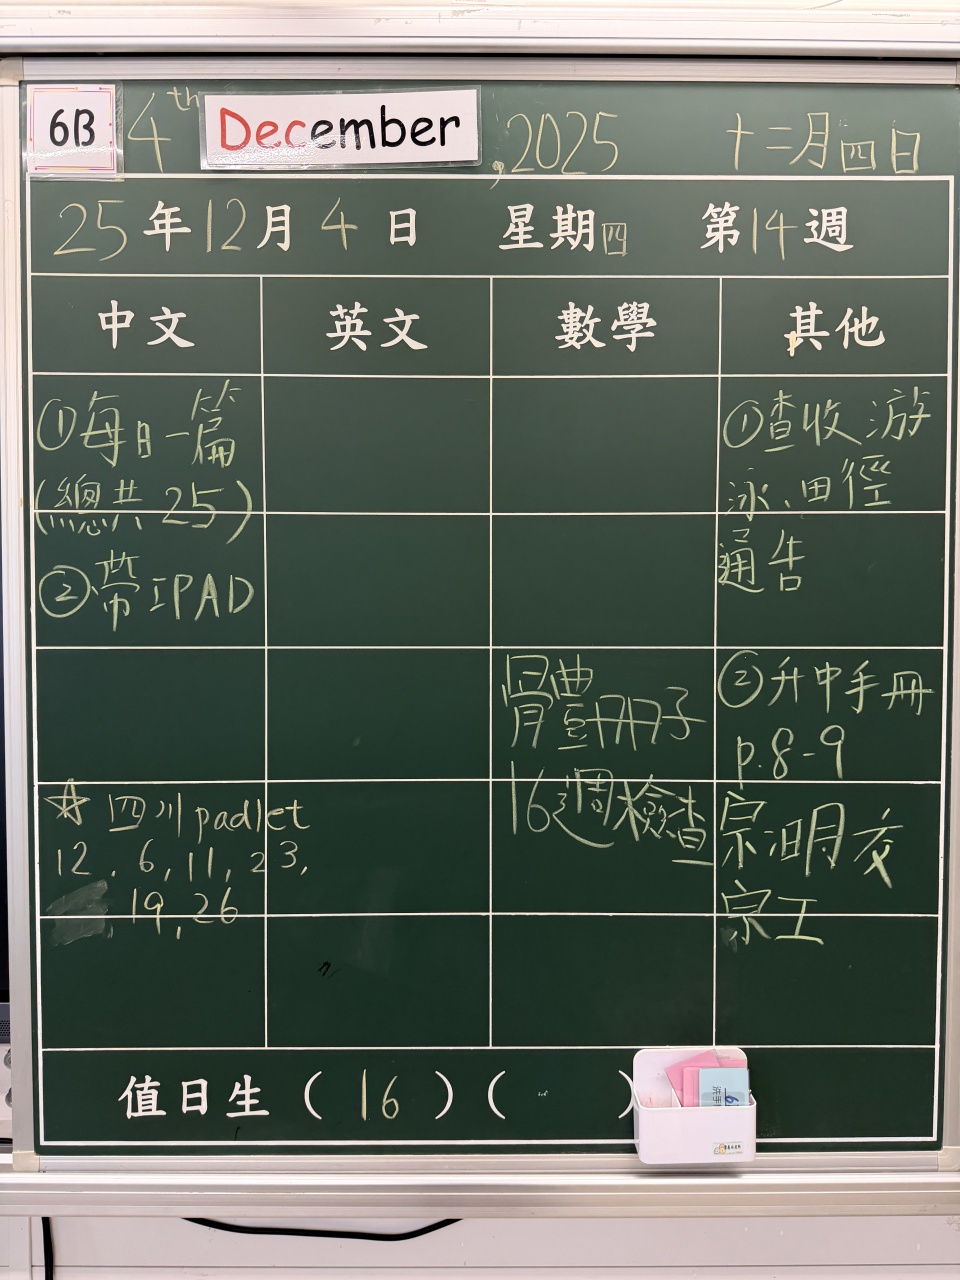 6B 4th December, 2025 十二月四日
25年12月4日 星期四 第14週
中文 英文 數學 其他
①每日一篇
(總共25)
②帶IPAD
☆ 四川padlet
12. 6, 11, 23,
19, 26
體冊子
16週檢查
①查收游
泳、田徑
通告
②升中手冊
p.8-9
宗明交
宗工
值日生(16)( )